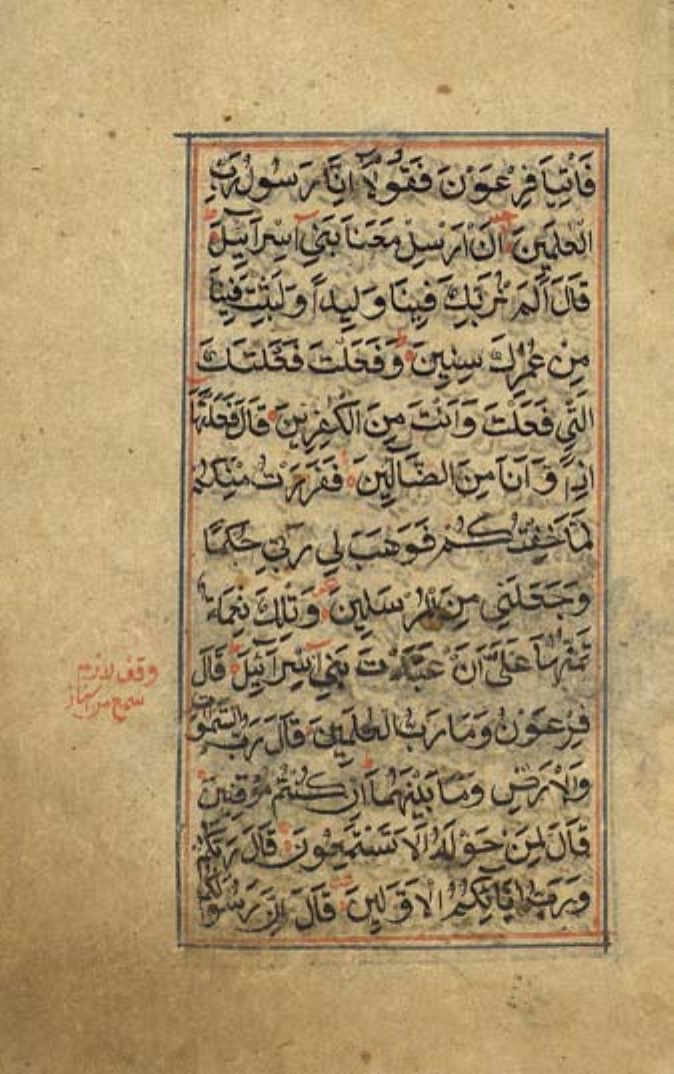 فَأْتِيَا فِرْعَوْنَ فَقُولَا إِنَّا رَسُولُ رَبِّ
الْعٰلَمِينَ اَنْ اَرْسِلْ مَعَنَا بَنِي اِسْرَآئِيلَ
قَالَ اَلَمْ نُرَبِّكَ فِينَا وَلِيداً وَلَبِثْتَ فِينَا
مِنْ عُمُرِكَ سِنِينَ وَفَعَلْتَ فَعْلَتَكَ
الَّتِي فَعَلْتَ وَاَنْتَ مِنَ الْكٰفِرِينَ قَالَ فَعَلْتُهَا
اِذاً وَاَنَا مِنَ الضَّآلِّينَ فَفَرَرْتُ مِنْكُمْ
لَمَّا خِفْتُكُمْ فَوَهَبَ لِي رَبِّي حُكْمًا
وَجَعَلَنِي مِنَ الْمُرْسَلِينَ وَتِلْكَ نِعْمَةٌ
تَمُنُّهَا عَلَيَّ اَنْ عَبَّدْتَ بَنِي اِسْرَآئِيلَ قَالَ
فِرْعَوْنُ وَمَا رَبُّ الْعٰلَمِينَ قَالَ رَبُّ السَّمٰوٰتِ
وَالْاَرْضِ وَمَا بَيْنَهُمَا اِنْ كُنْتُمْ مُوقِنِينَ
قَالَ لِمَنْ حَوْلَهُ اَلَا تَسْتَمِعُونَ قَالَ رَبُّكُمْ
وَرَبُّ اٰبَآئِكُمُ الْاَوَّلِينَ قَالَ اِنَّ رَسُولَكُمُ
وقف لازم